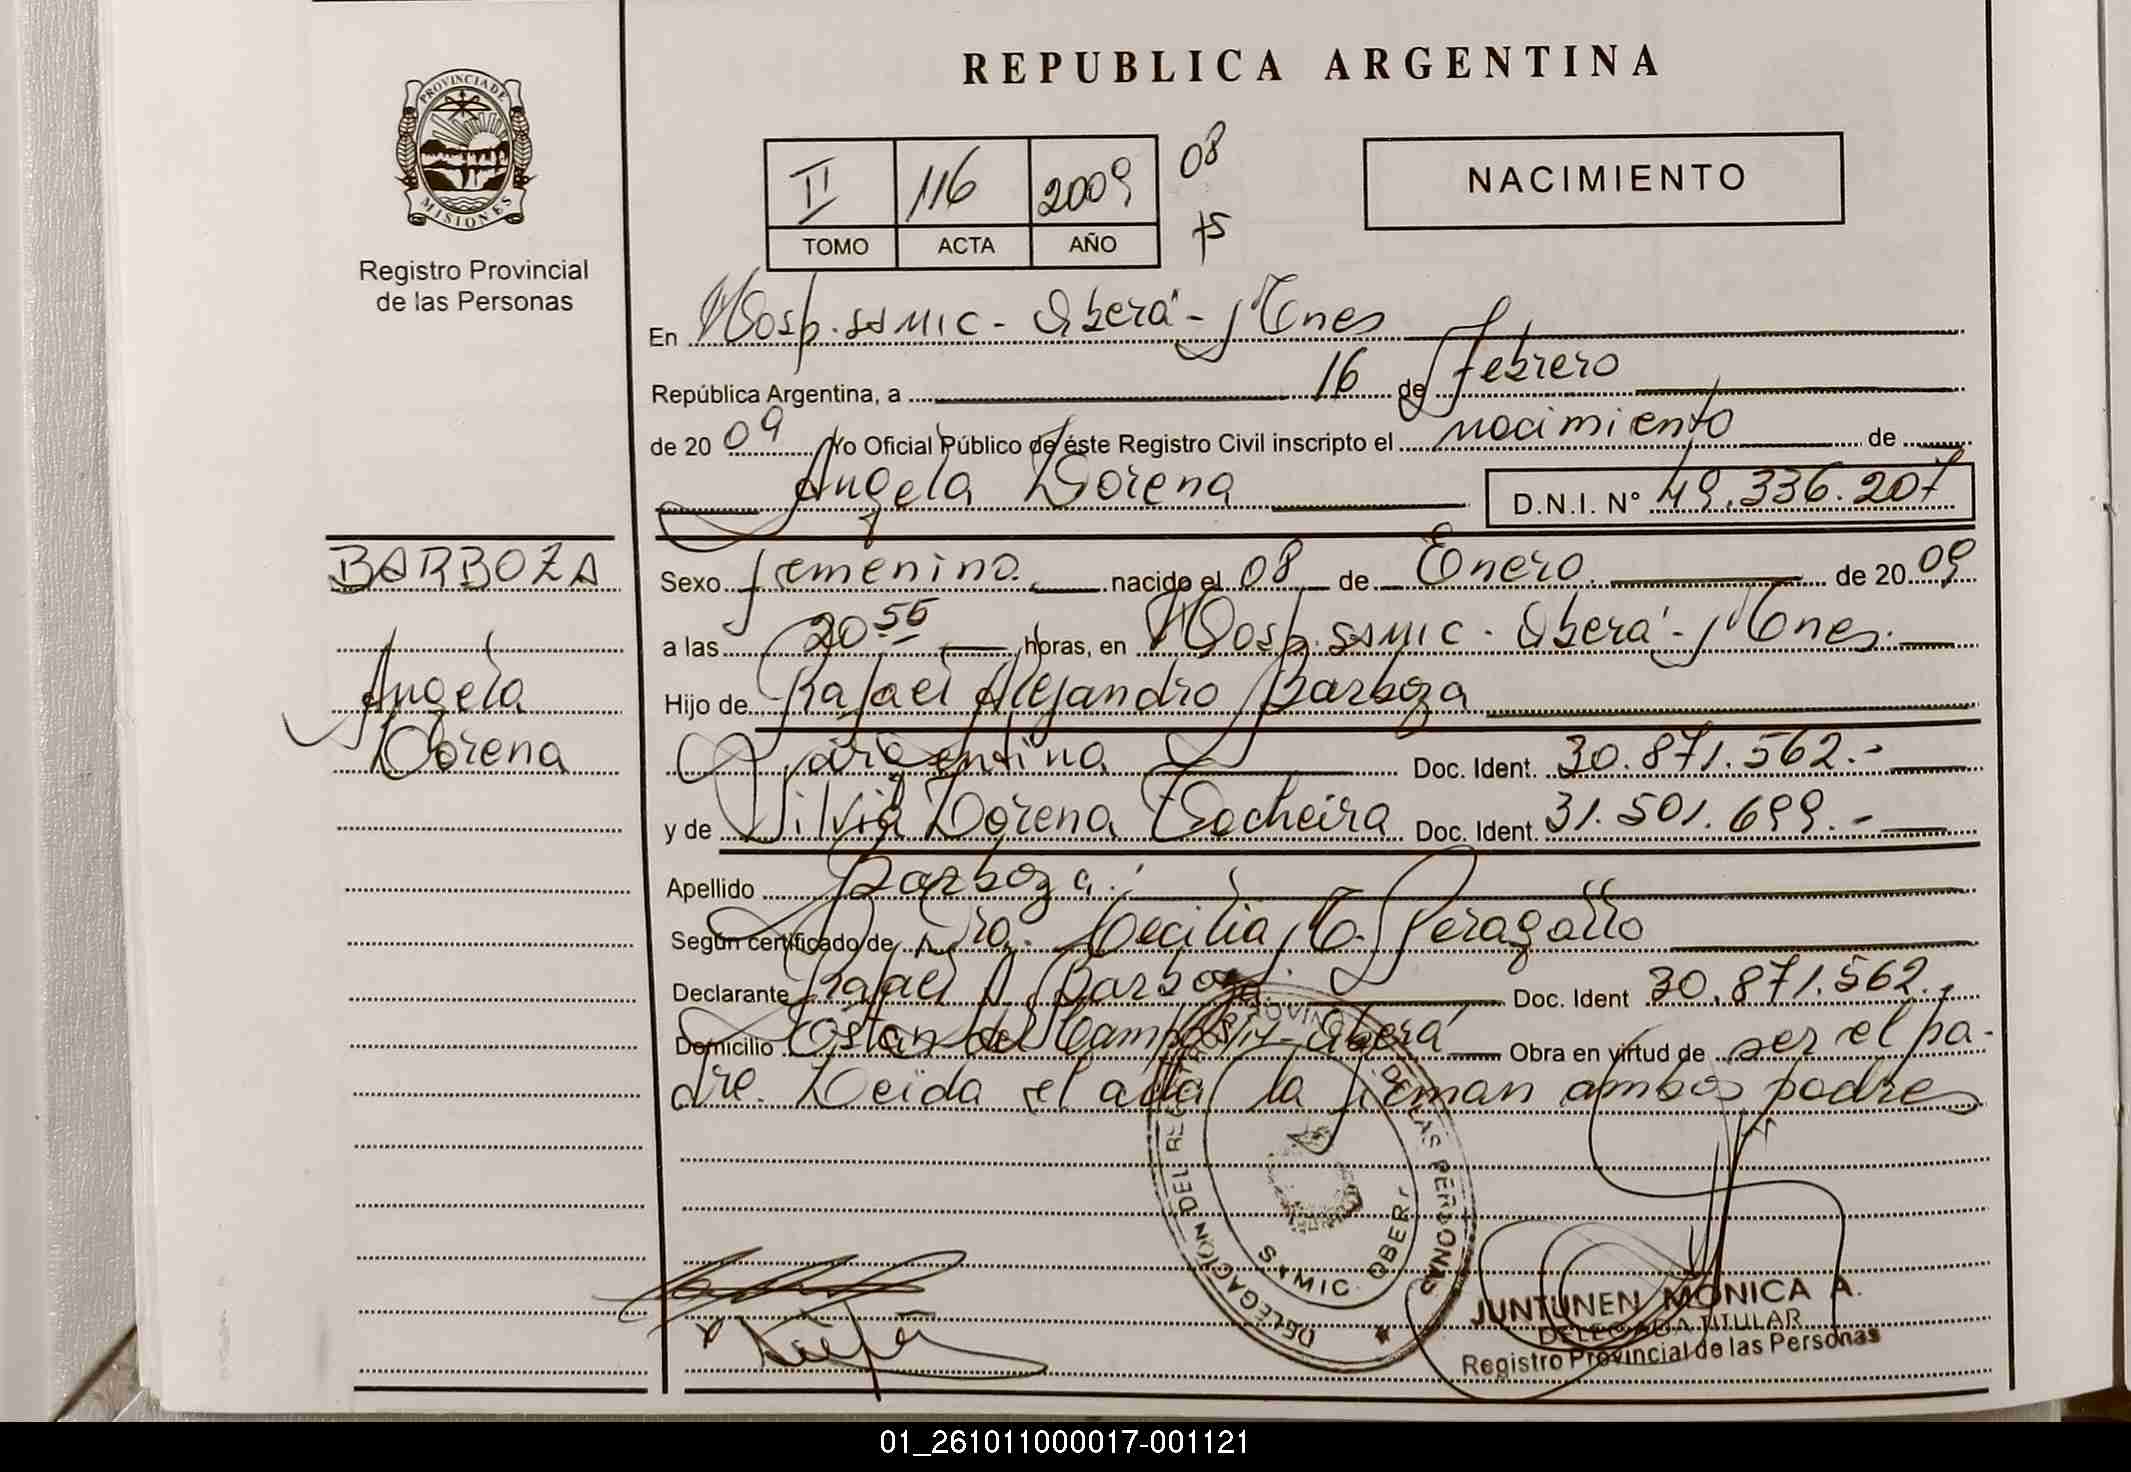 REPUBLICA ARGENTINA
PROVINCIA DE
MISIONES
Registro Provincial
de las Personas
II 116 2009 08
TOMO ACTA AÑO
NACIMIENTO
En Hosp. SAMIC - Oberá - Mnes
República Argentina, a 16 de febrero
de 2009 Yo Oficial Público de éste Registro Civil inscripto el nacimiento de
Angela Lorena D.N.I. Nº 49.336.207
BARBOZA
Angela
Lorena
Sexo femenino nacido el 08 de Enero de 2009
a las 20 55 horas, en Hosp. SAMIC - Oberá - Mnes.
Hijo de Rafael Alejandro Barboza
argentina Doc. Ident. 30.871.562.-
y de Silvia Lorena Doc. Ident. 31.501.699.-
Apellido Barboza.
Según certificado de Dra. Cecilia M. Peragallo
Declarante Rafael A Barboza Doc. Ident 30.871.562.
Domicilio del Campo S/N - Oberá Obra en virtud de ser el pa-
dre. Leida el acta la firman ambos padres
DELEGACIÓN DEL REGISTRO PROVINCIAL DE LAS PERSONAS
SAMIC. OBERA
JUNTUNEN MONICA A.
DELEGADA TITULAR
Registro Provincial de las Personas
01_261011000017-001121